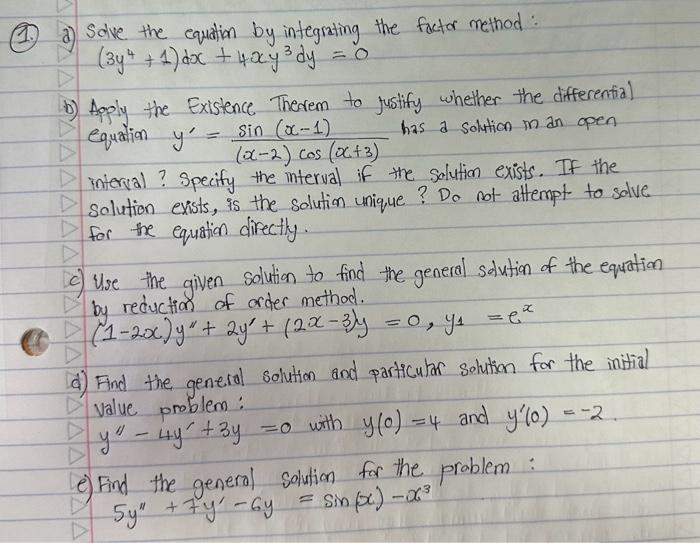 1. a) Solve the equation by integrating the factor method :
(3y⁴ + 1)dx + 4xy³dy = 0
b) Apply the Existence Theorem to justify whether the differential
equation y' = sin (x-1) / (x-2) cos (x+3) has a solution in an open
interval ? Specify the interval if the solution exists. If the
solution exists, is the solution unique ? Do not attempt to solve
for the equation directly.
c) Use the given solution to find the general solution of the equation
by reduction of order method.
(1-2x)y" + 2y' + (2x-3)y = 0, y₁ = eˣ
d) Find the general solution and particular solution for the initial
value problem :
y" - 4y' + 3y = 0 with y(0) = 4 and y'(0) = -2.
e) Find the general solution for the problem :
5y" + 7y' - 6y = sin(x) - x³